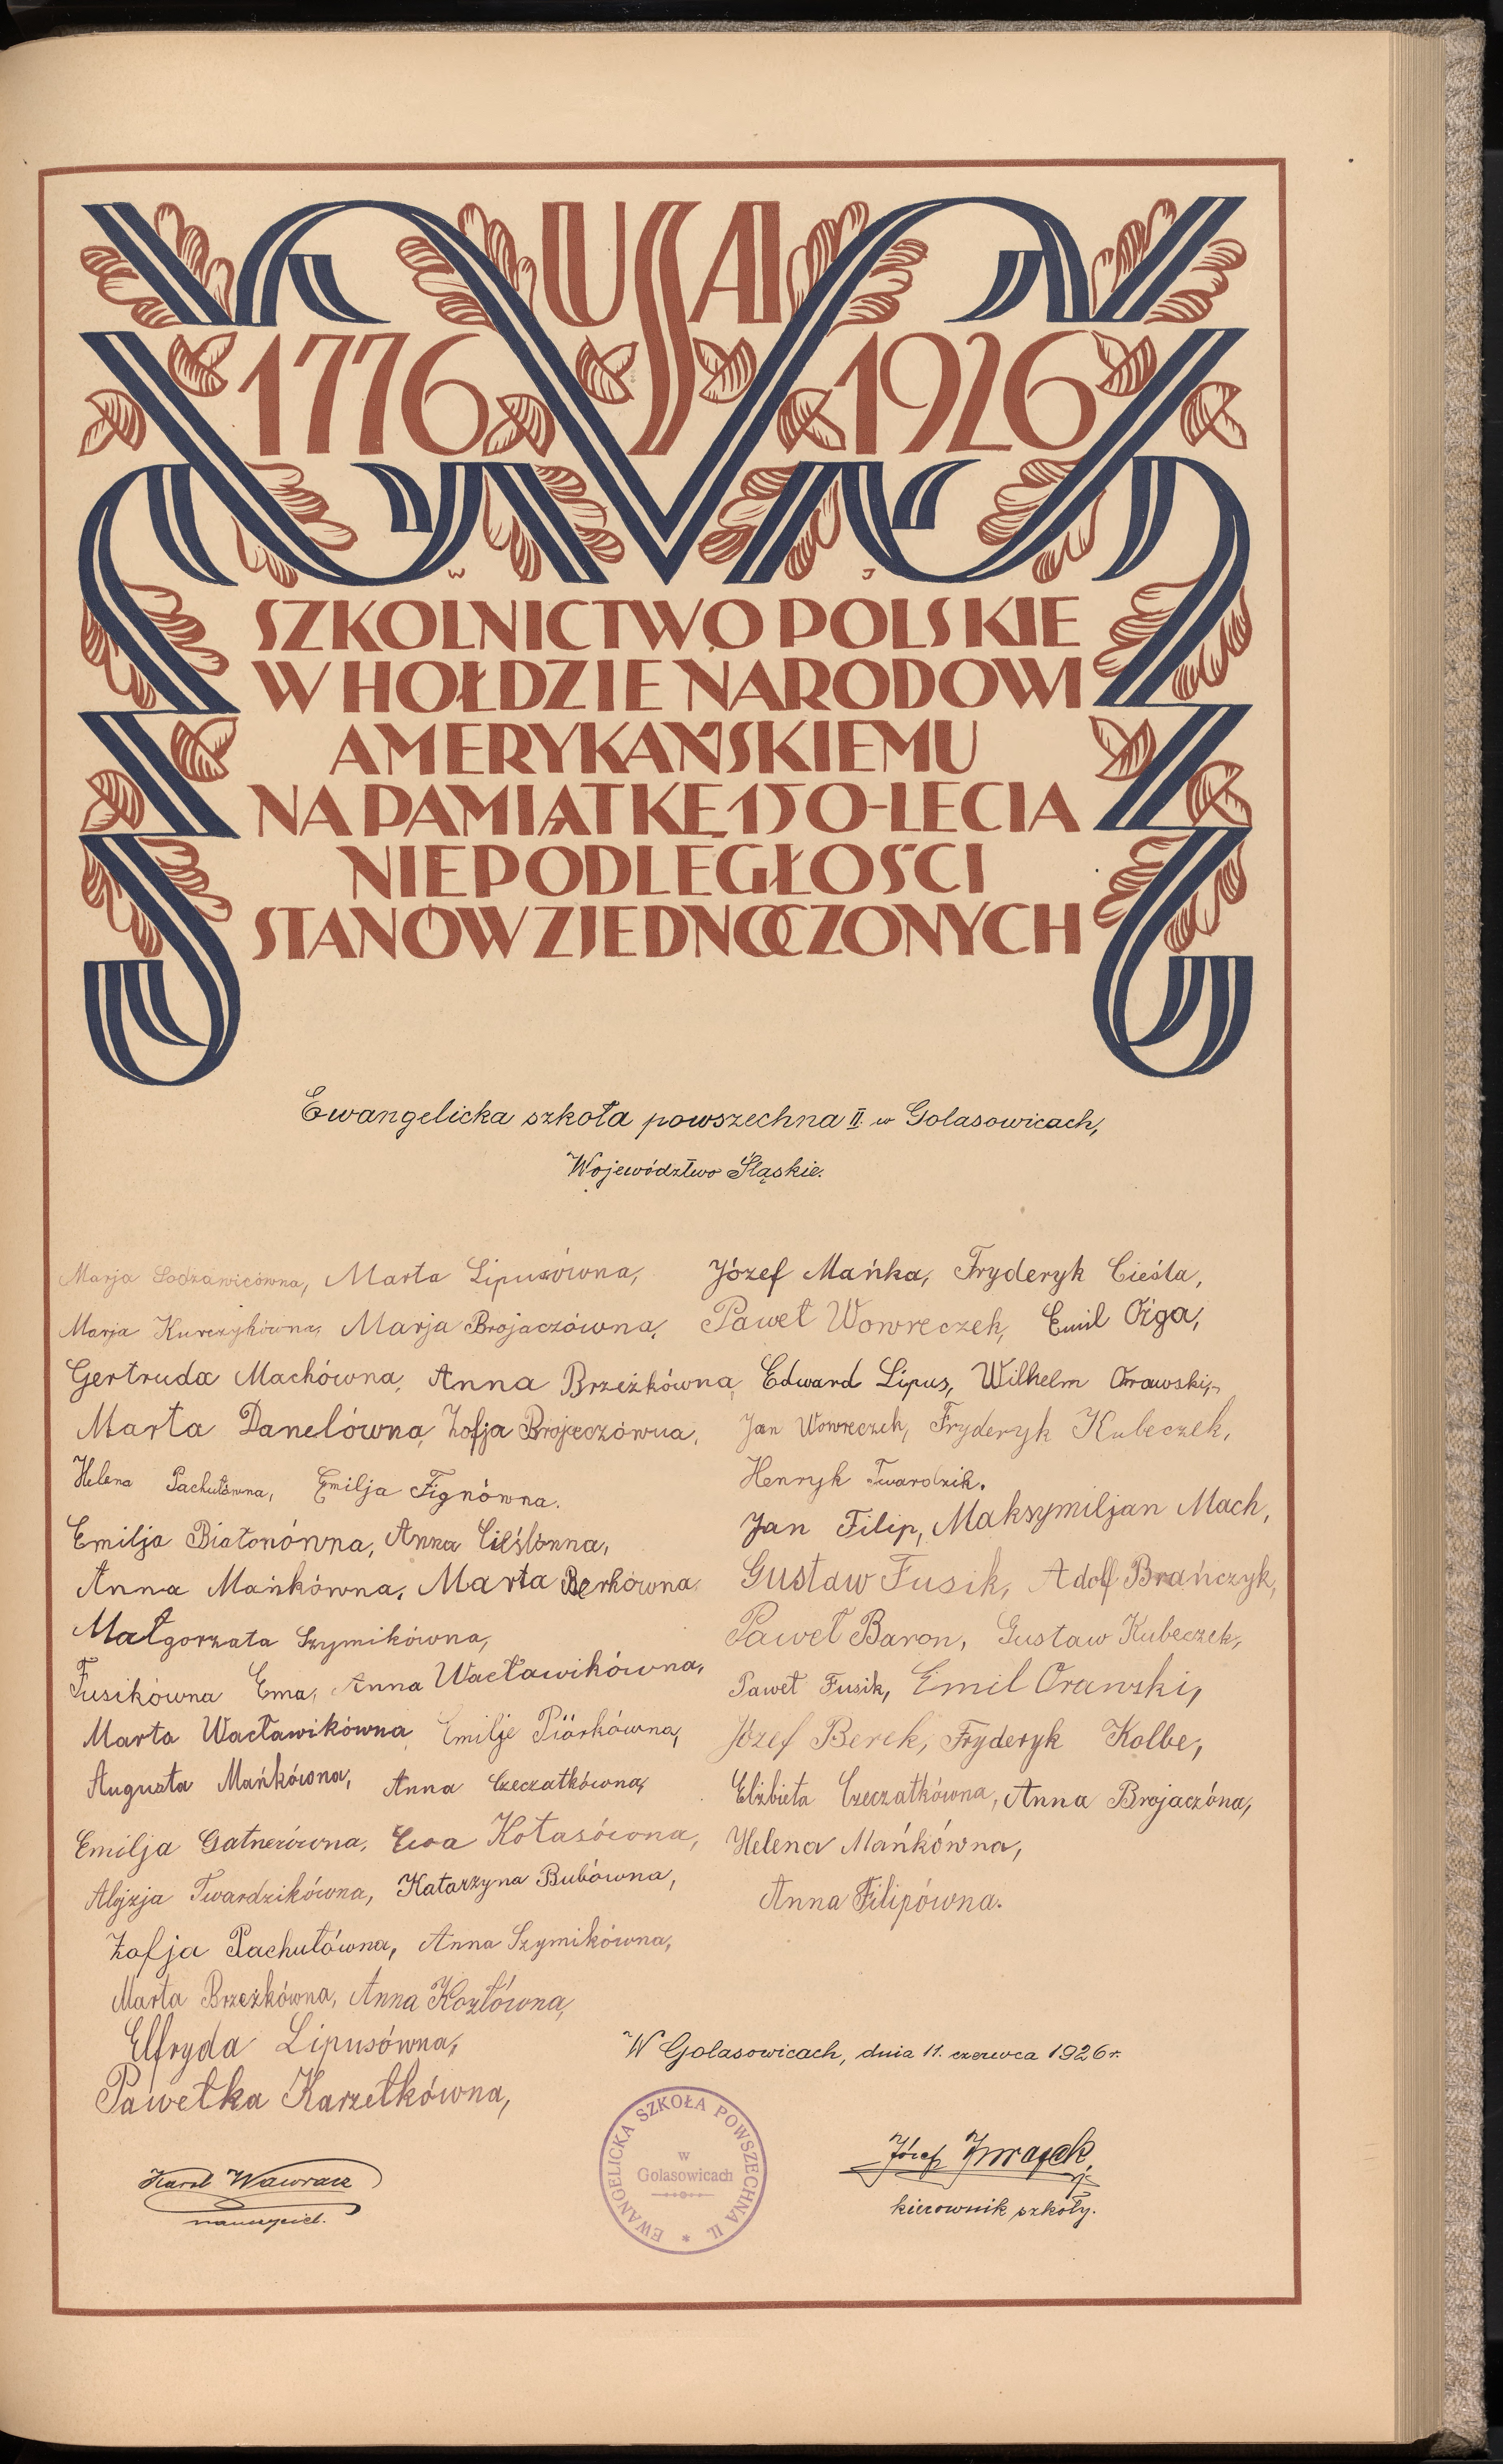 USA
1776 1926
W J
SZKOLNICTWO POLSKIE
W HOŁDZIE NARODOWI
AMERYKAŃSKIEMU
NA PAMIĄTKĘ 150-LECIA
NIEPODLEGŁOŚCI
STANÓW ZJEDNOCZONYCH
Ewangelicka szkoła powszechna II. w Golasowicach,
Województwo Śląskie.
Marja Sodzawicówna, Marta Lipusówna,
Marja Kurczykówna, Marja Brojaczówna,
Gertruda Machówna, Anna Brzeżkówna,
Marta Danelówna, Zofja Brojaczówna,
Helena Pachułówna, Emilja Fignówna.
Emilja Białoniówna, Anna Cieślónna,
Anna Mańkówna, Marta Berkówna,
Małgorzata Szymikówna,
Fusikówna Ema, Anna Wacławikówna,
Marta Wacławikówna, Emilje Piórkówna,
Augusta Mańkówna, Anna Czeczatkówna,
Emilja Gatnerówna, Ewa Kotasówna,
Alojzja Twardzikówna, Katarzyna Bubówna,
Zofja Pachułówna, Anna Szymikówna,
Marta Brzeżkówna, Anna Kozłówna,
Elfryda Lipusówna,
Pawełka Karzełkówna,
Józef Mańka, Fryderyk Cieśla,
Paweł Wowreczek, Emil Ożga,
Edward Lipus, Wilhelm Orawski,
Jan Wowreczek, Fryderyk Kubeczek,
Henryk Twardzik.
Jan Filip, Maksymiljan Mach,
Gustaw Fusik, Adolf Brańczyk,
Paweł Baron, Gustaw Kubeczek,
Paweł Fusik, Emil Orawski,
Józef Berek, Fryderyk Kolbe,
Elżbieta Czeczatkówna, Anna Brojaczóna,
Helena Mańkówna,
Anna Filipówna.
W Golasowicach, dnia 11. czerwca 1926 r.
Karol Wawracz
nauczyciel.
EWANGELICKA SZKOŁA POWSZECHNA II. *
w
Golasowicach
Józef
kierownik szkoły.